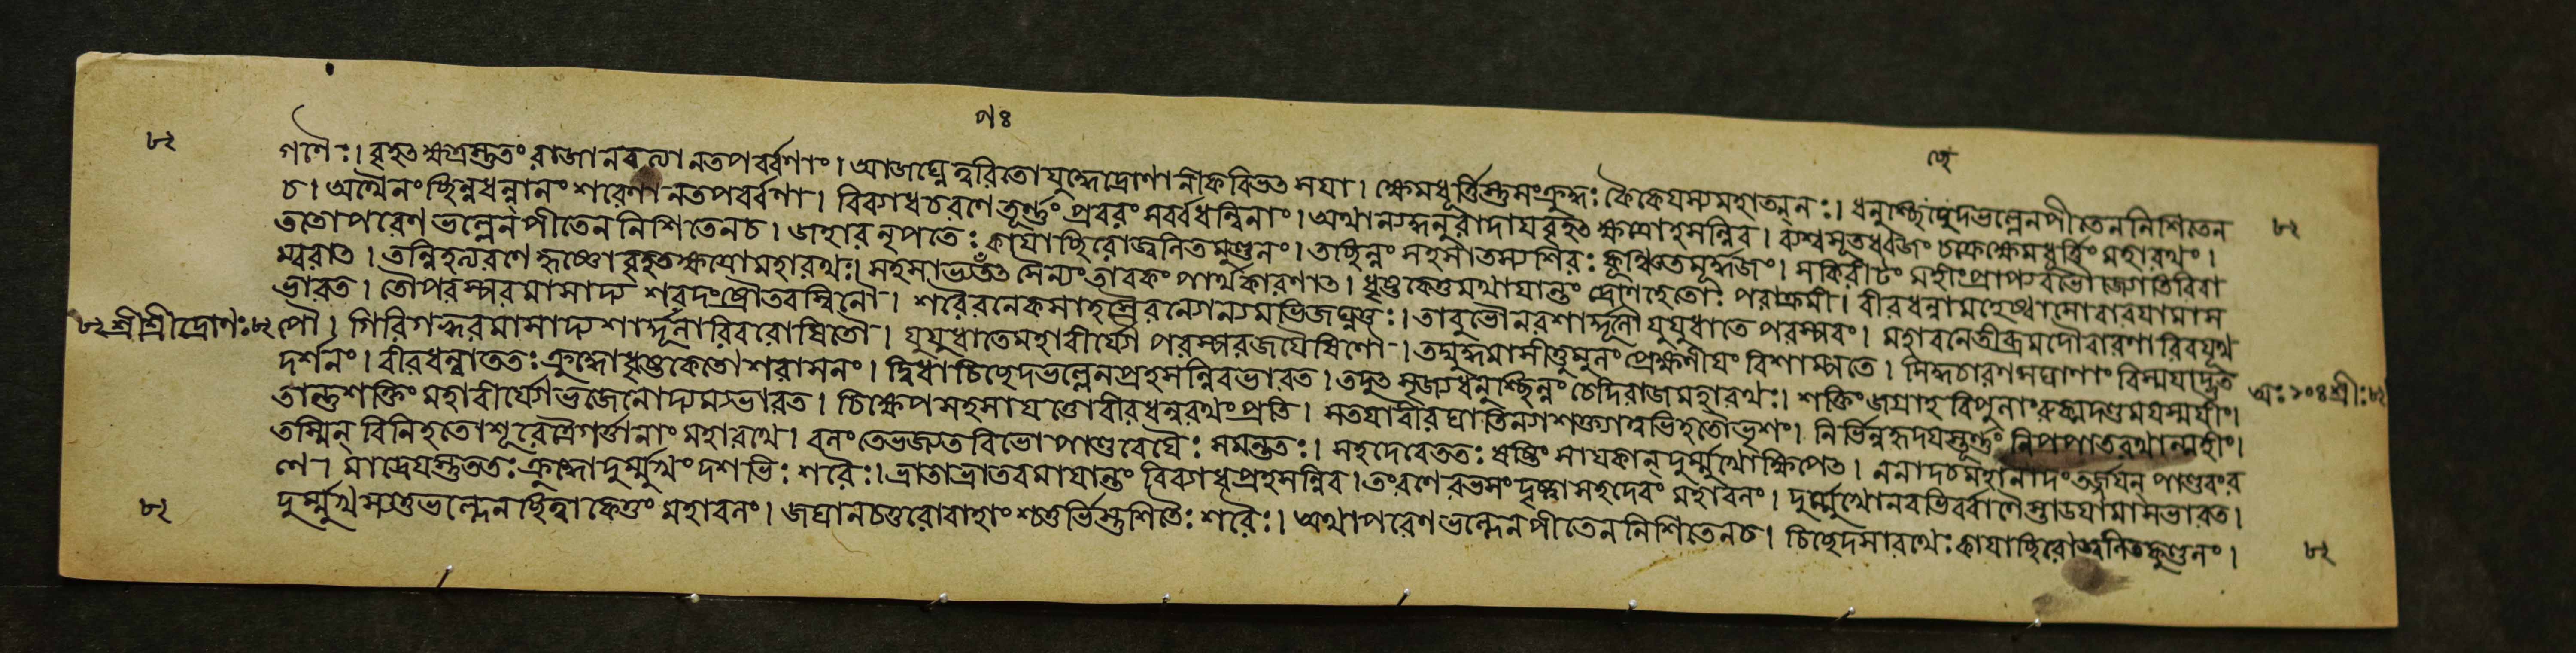 ৮২ ণঃ ছে
গণৈঃ। বৃহৎক্ষত্রস্তুতং রাজানবত্যানতপর্ব্বণাং। আজঘ্নেত্বরিতোযুদ্ধেদ্রোণানীকবিভিৎসযা। ক্ষেমধূর্ত্তিস্তুসংক্রুদ্ধঃ কৈকেযস্যমহাত্মনঃ। ধনুশ্চিচ্ছেদভল্লেনপীতেননিশিতেন
চ। অথৈনং ছিন্নধন্বানং শরেণানতপর্ব্বণা। বিব্যাধচরণেতূর্ণ্ণং প্রবরং সর্ব্বধন্বিনাং। অথান্যদ্ধনুরাদাযবৃহৎক্ষত্রোহসন্নিব। ব্যশ্বসূতধ্বজং চক্রেক্ষেমধূর্ত্তিং মহারথং। ৮২
ততোপরেণভল্লেনপীতেননিশিতেনচ। জহারনৃপতেঃ কাযাচ্ছিরোজ্বলিতকুণ্ডলং। তচ্ছিন্নং সহসাতস্যশিরঃ কুঞ্চিতমূর্দ্ধজং। সকিরীটং মহীংপ্রাপ্যবভৌজ্যোতিরিবা
ম্বরাৎ। তন্নিহত্যরণেহৃষ্টোবৃহৎক্ষত্রোমহারথঃ। সহসাভ্যপতৎ সৈন্যংতাবকং পার্থকারণাৎ। ধৃষ্টকেতুমথাযান্তং দ্রোণহেতোঃ পরাক্রমী। বীরধন্বামহেষ্বাসোবারযামাস
ভারত। তৌপরস্পরমাসাদ্য শরদংষ্ট্রৌতরস্বিনৌ। শরৈরনেকসাহস্রৈরন্যোন্যমভিজঘ্নতুঃ। তাবুভৌনরশার্দ্দূলৌযুযুধাতে পরস্পরং। মহাবনেতীব্রমদৌবারণাবিবযূথ
৮২ শ্রীশ্রীদ্রোণঃ ৮২ পৌ। গিরিগহ্বরমাসাদ্যশার্দ্দূলাবিবরোষিতৌ। যুযুধাতেমহাবীর্য্যৌ পরস্পরজযৈষিণৌ। তদ্যুদ্ধমাসীত্তুমুলং প্রেক্ষণীযং বিশাম্পতে। সিদ্ধচারণসঘাণাং বিস্মযাদ্ভুত
দর্শনং। বীরধন্বাততঃ ক্রুদ্ধোধৃষ্টকেতোঃ শরাসনং। দ্বিধাচিচ্ছেদভল্লেনপ্রহসন্নিবভারত। তদুৎসৃজ্যধনুশ্ছিন্নং চেদিরাজমহারথঃ। শক্তিং জগ্রাহ বিপুলাং রুক্মদণ্ডমযস্মযীং। অঃ ১০৪ শ্রীঃ ৮২
তান্তুশক্তিং মহাবীর্য্যোভুজেনোদ্যম্যভারত। চিক্ষেপসহসাযত্তোবীরধন্বরথংপ্রতি। সতযাবীরঘাতিন্যাশক্ত্যাত্বভিহতোভৃশং। নির্ভিন্নহৃদযস্তূর্ণ্ণং নিপপাতরথান্মহীং।
তস্মিন্ বিনিহতেশূরেত্রৈগর্ত্তানাং মহারথে। বলং তেভজ্যতবিভো পাণ্ডবেযৈঃ সমন্ততঃ। সহদেবেততঃ ষষ্টিং সাযকান্ দুর্ম্মুখোক্ষিপেৎ। ননাদচমহানাদং তর্জ্জযন্ পাণ্ডবংর
ণে। মাদ্রেযস্তুততঃ ক্রুদ্ধোদুর্ম্মুখং দশভিঃ শরৈঃ। ভ্রাতাভ্রাতরমাযান্তং বিব্যাধপ্রহসন্নিব। তংরণেরভসং দৃষ্ট্বাসহদেবং মহাবলং। দুর্ম্মুখোনবভির্ব্বাণৈস্তাডযামাসভারত।
৮২ দুর্ম্মুখস্যতুভল্লেনছিত্ত্বাকেতুং মহাবলং। জঘানচতুরোবাহাংশ্চতুর্ভিস্তুশিতৈঃ শরৈঃ। অথাপরেণভল্লেনপীতেননিশিতেনচ। চিচ্ছেদসারথেঃ কাযাচ্ছিরোজ্বলিতকুণ্ডলং। ৮২